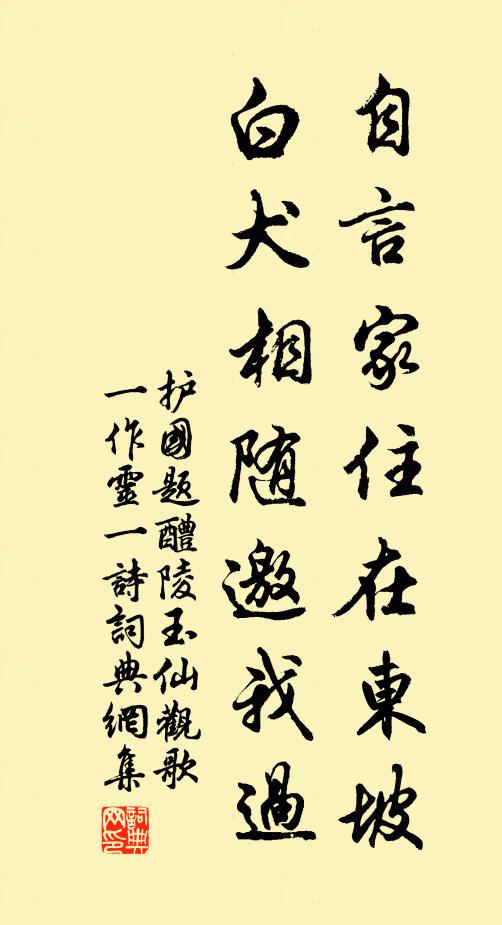 自言家住在東坡
白犬相随邀我過
护國题醴陵玉仙觀歌
一作靈一詩詞典網集
詞典網印